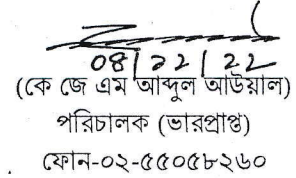 08/12/22
(কে জে এম আব্দুল আউয়াল)
পরিচালক (ভারপ্রাপ্ত)
ফোন-০২-৫৫০৫৮২৬০